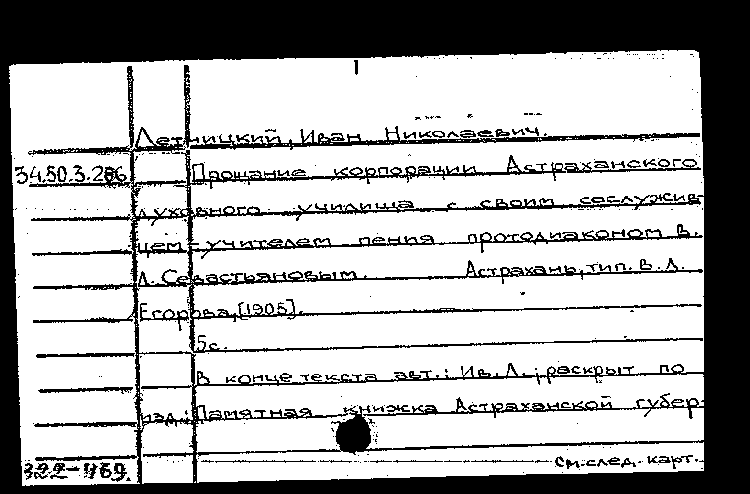 Летницкий, Иван Николаевич.
34.50.3.286 Прощание корпорации Астраханского
духовного училища с своим сослужив-
цем-учителем пения протодиаконом В.
Л. Севастьяновым. Астрахань, тип. В. Л.
Егорова, [1905].
5с.
В конце текста авт.: Ив. Л.; раскрыт по
изд.: Памятная книжка Астраханской губер-
322-469. См. след. карт.